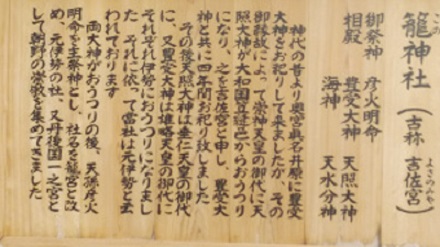 籠神社(古称 吉佐宮)
よさのみや
御祭神 彦火明命
相殿 豊受大神 天照大神
海神 天水分神
神代の昔より奥宮眞名井原に豊受
大神をお祀りして来ましたが その
御縁故によって崇神天皇の御代に天
照大神が大和国笠縫邑からおうつり
になり、之を吉佐宮と申し、豊受大
神と共に四年間お祀り致しました
その後天照大神は垂仁天皇の御代
に、又豊受大神は雄略天皇の御代に
それぞれ伊勢におうつりになりまし
た それに依って當社は元伊勢と云
われております
両大神がおうつりの後、天孫彦火
明命を主祭神とし、社名を籠宮と改
め、元伊勢の社、又丹後国一之宮と
して朝野の崇敬を集めて来ました